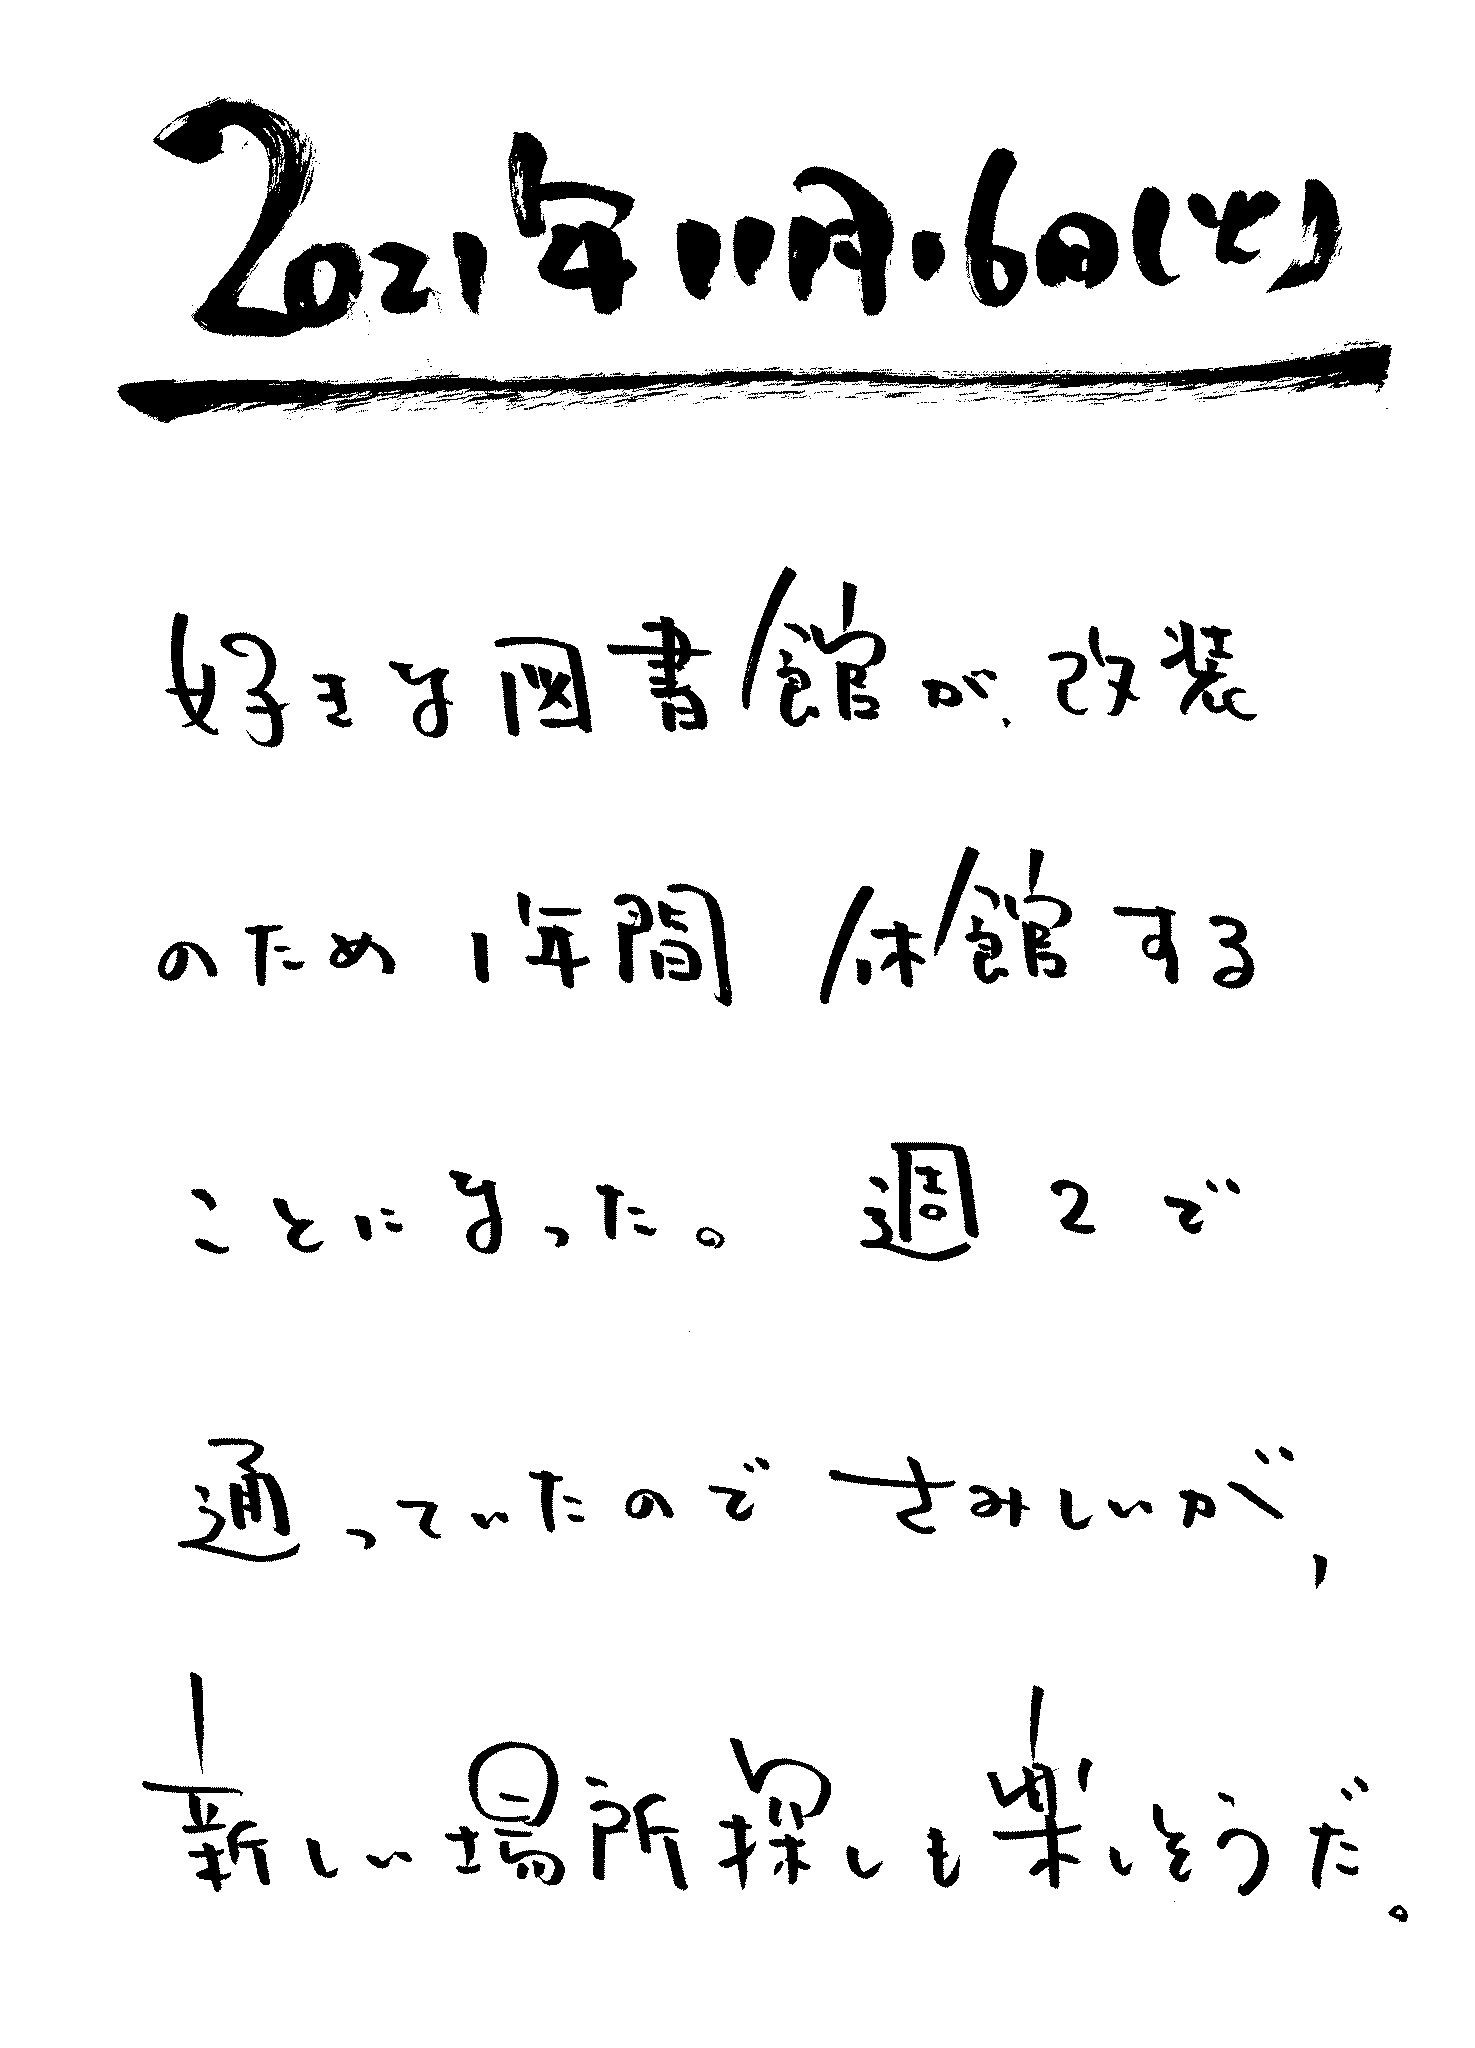 2021年11月16日(火)
好きな図書館が、改装
のため1年間 休館する
ことになった。 週2で
通っていたので さみしいが、
新しい場所探しも楽しそうだ。